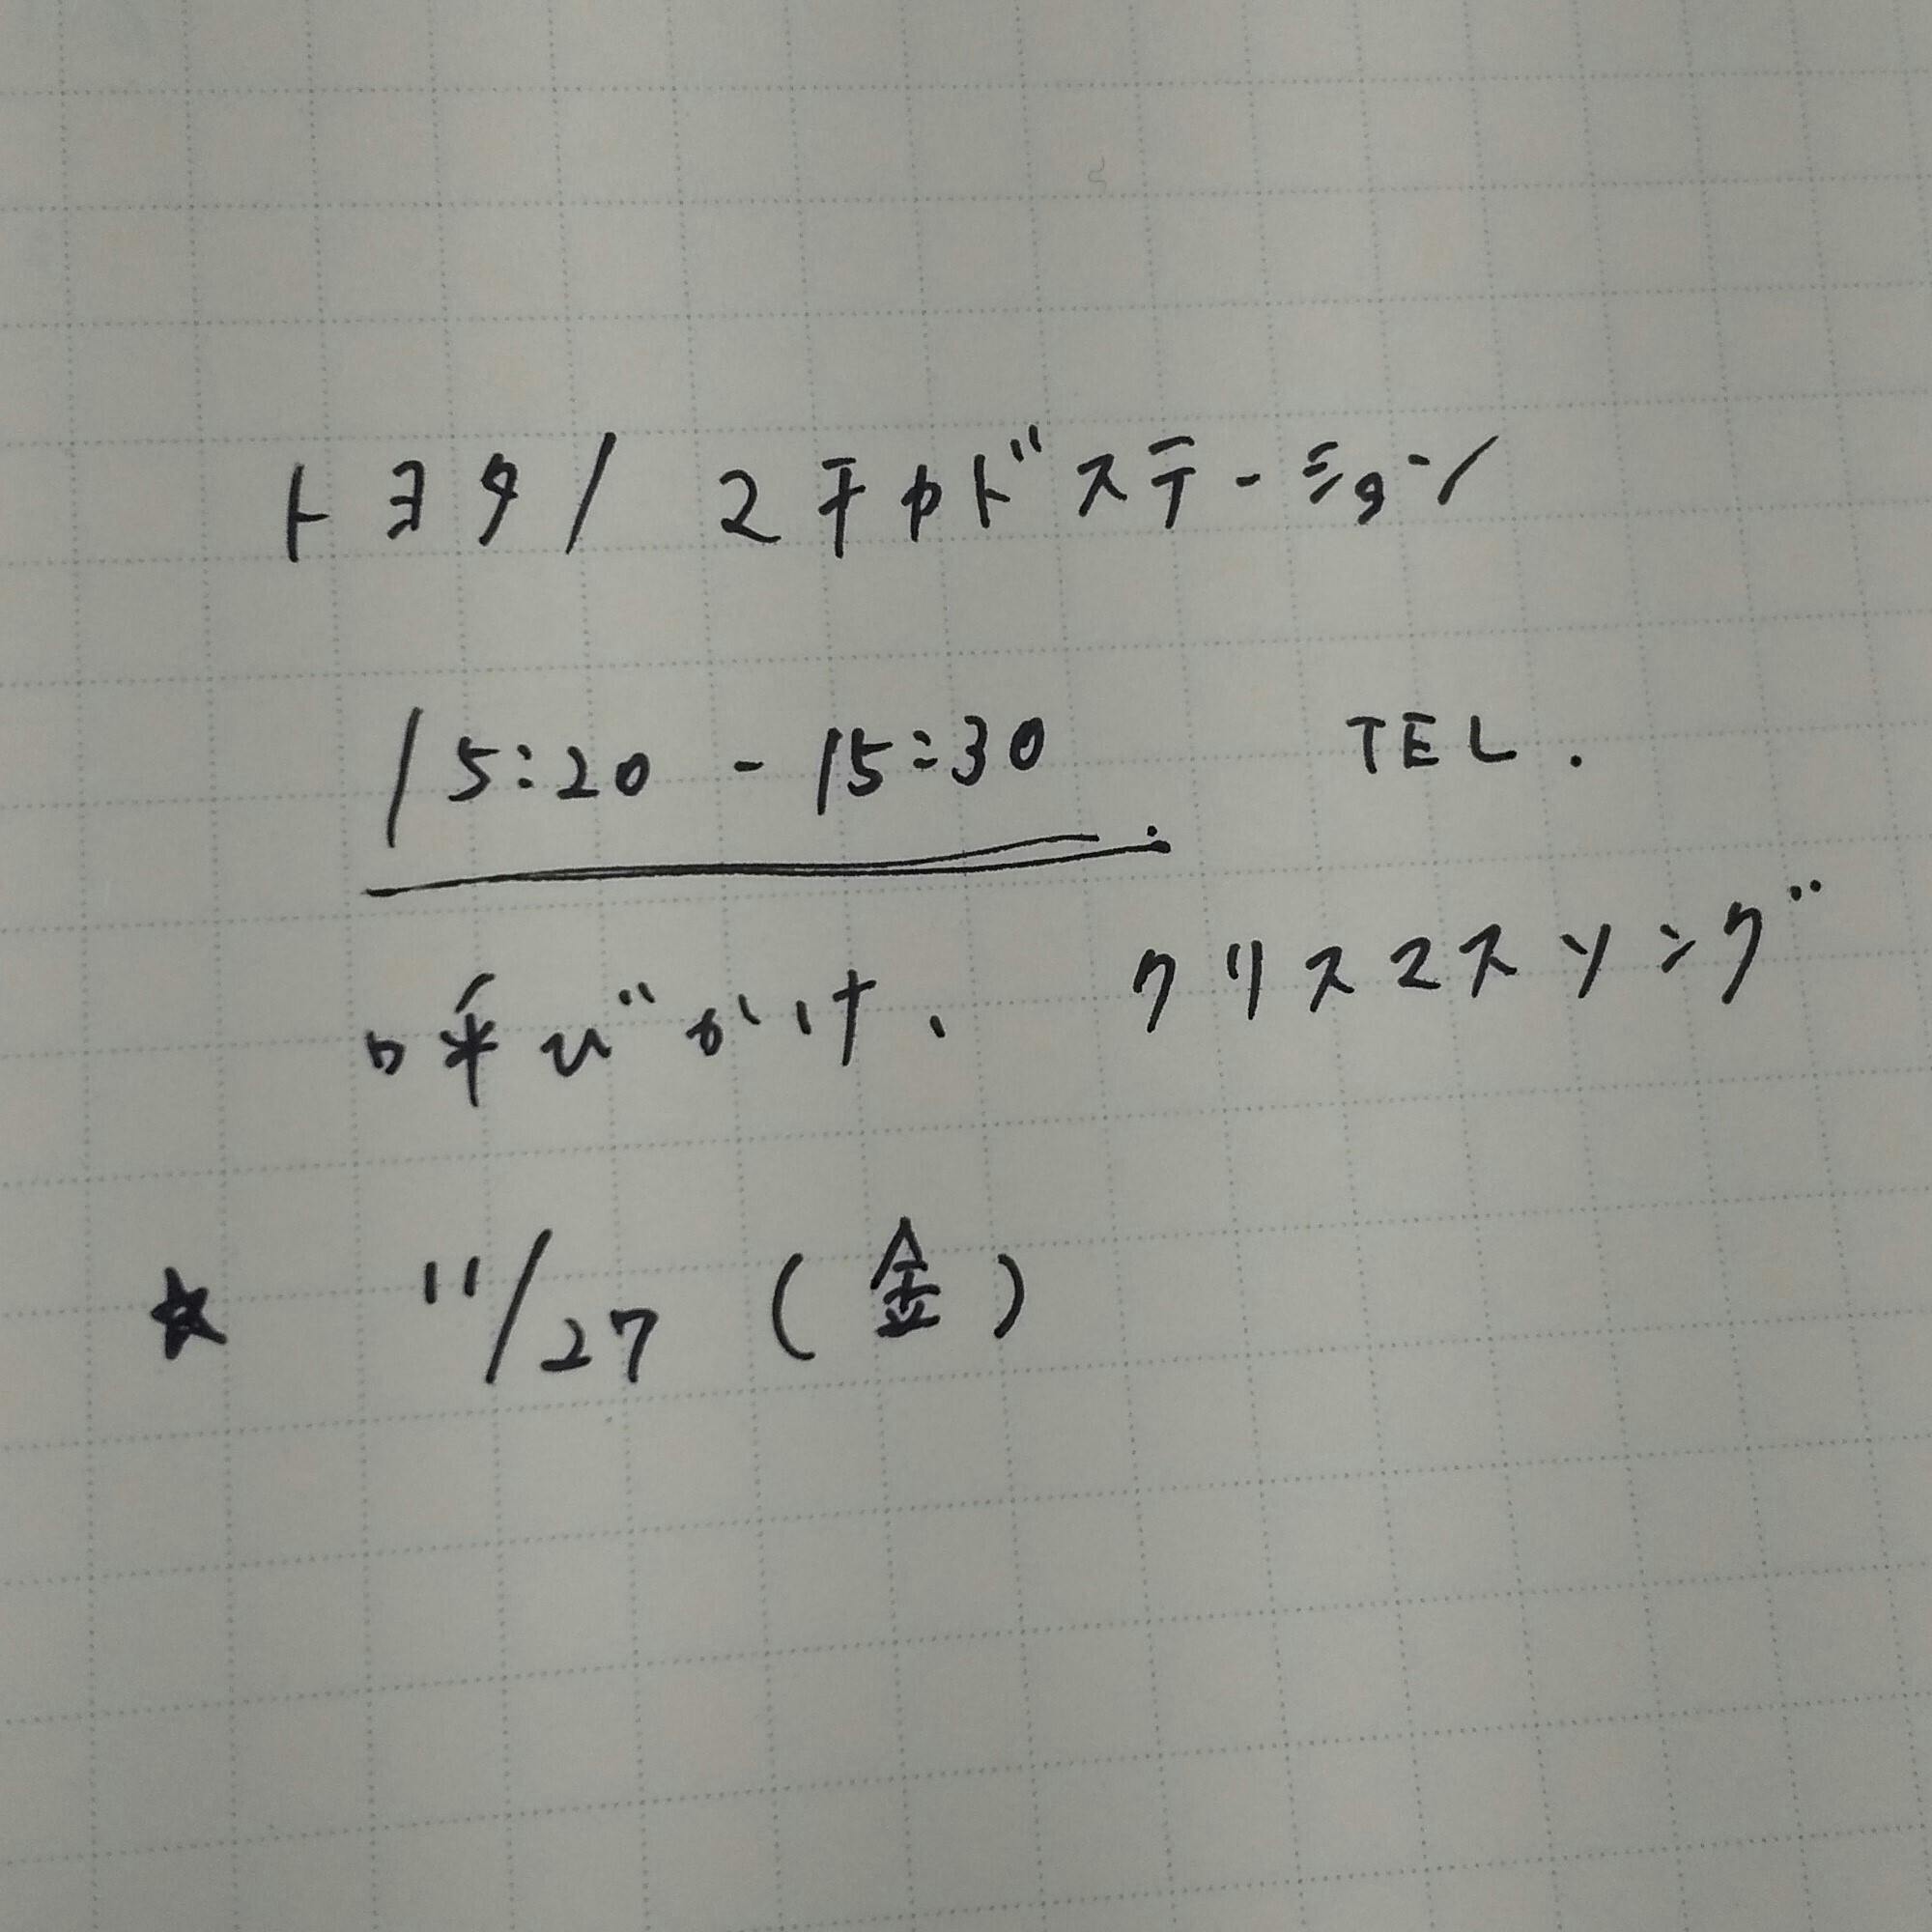 トヨタ / マチカドステーション
15:20 - 15:30 TEL.
呼びかけ、クリスマスソング
★ 11/27 (金)